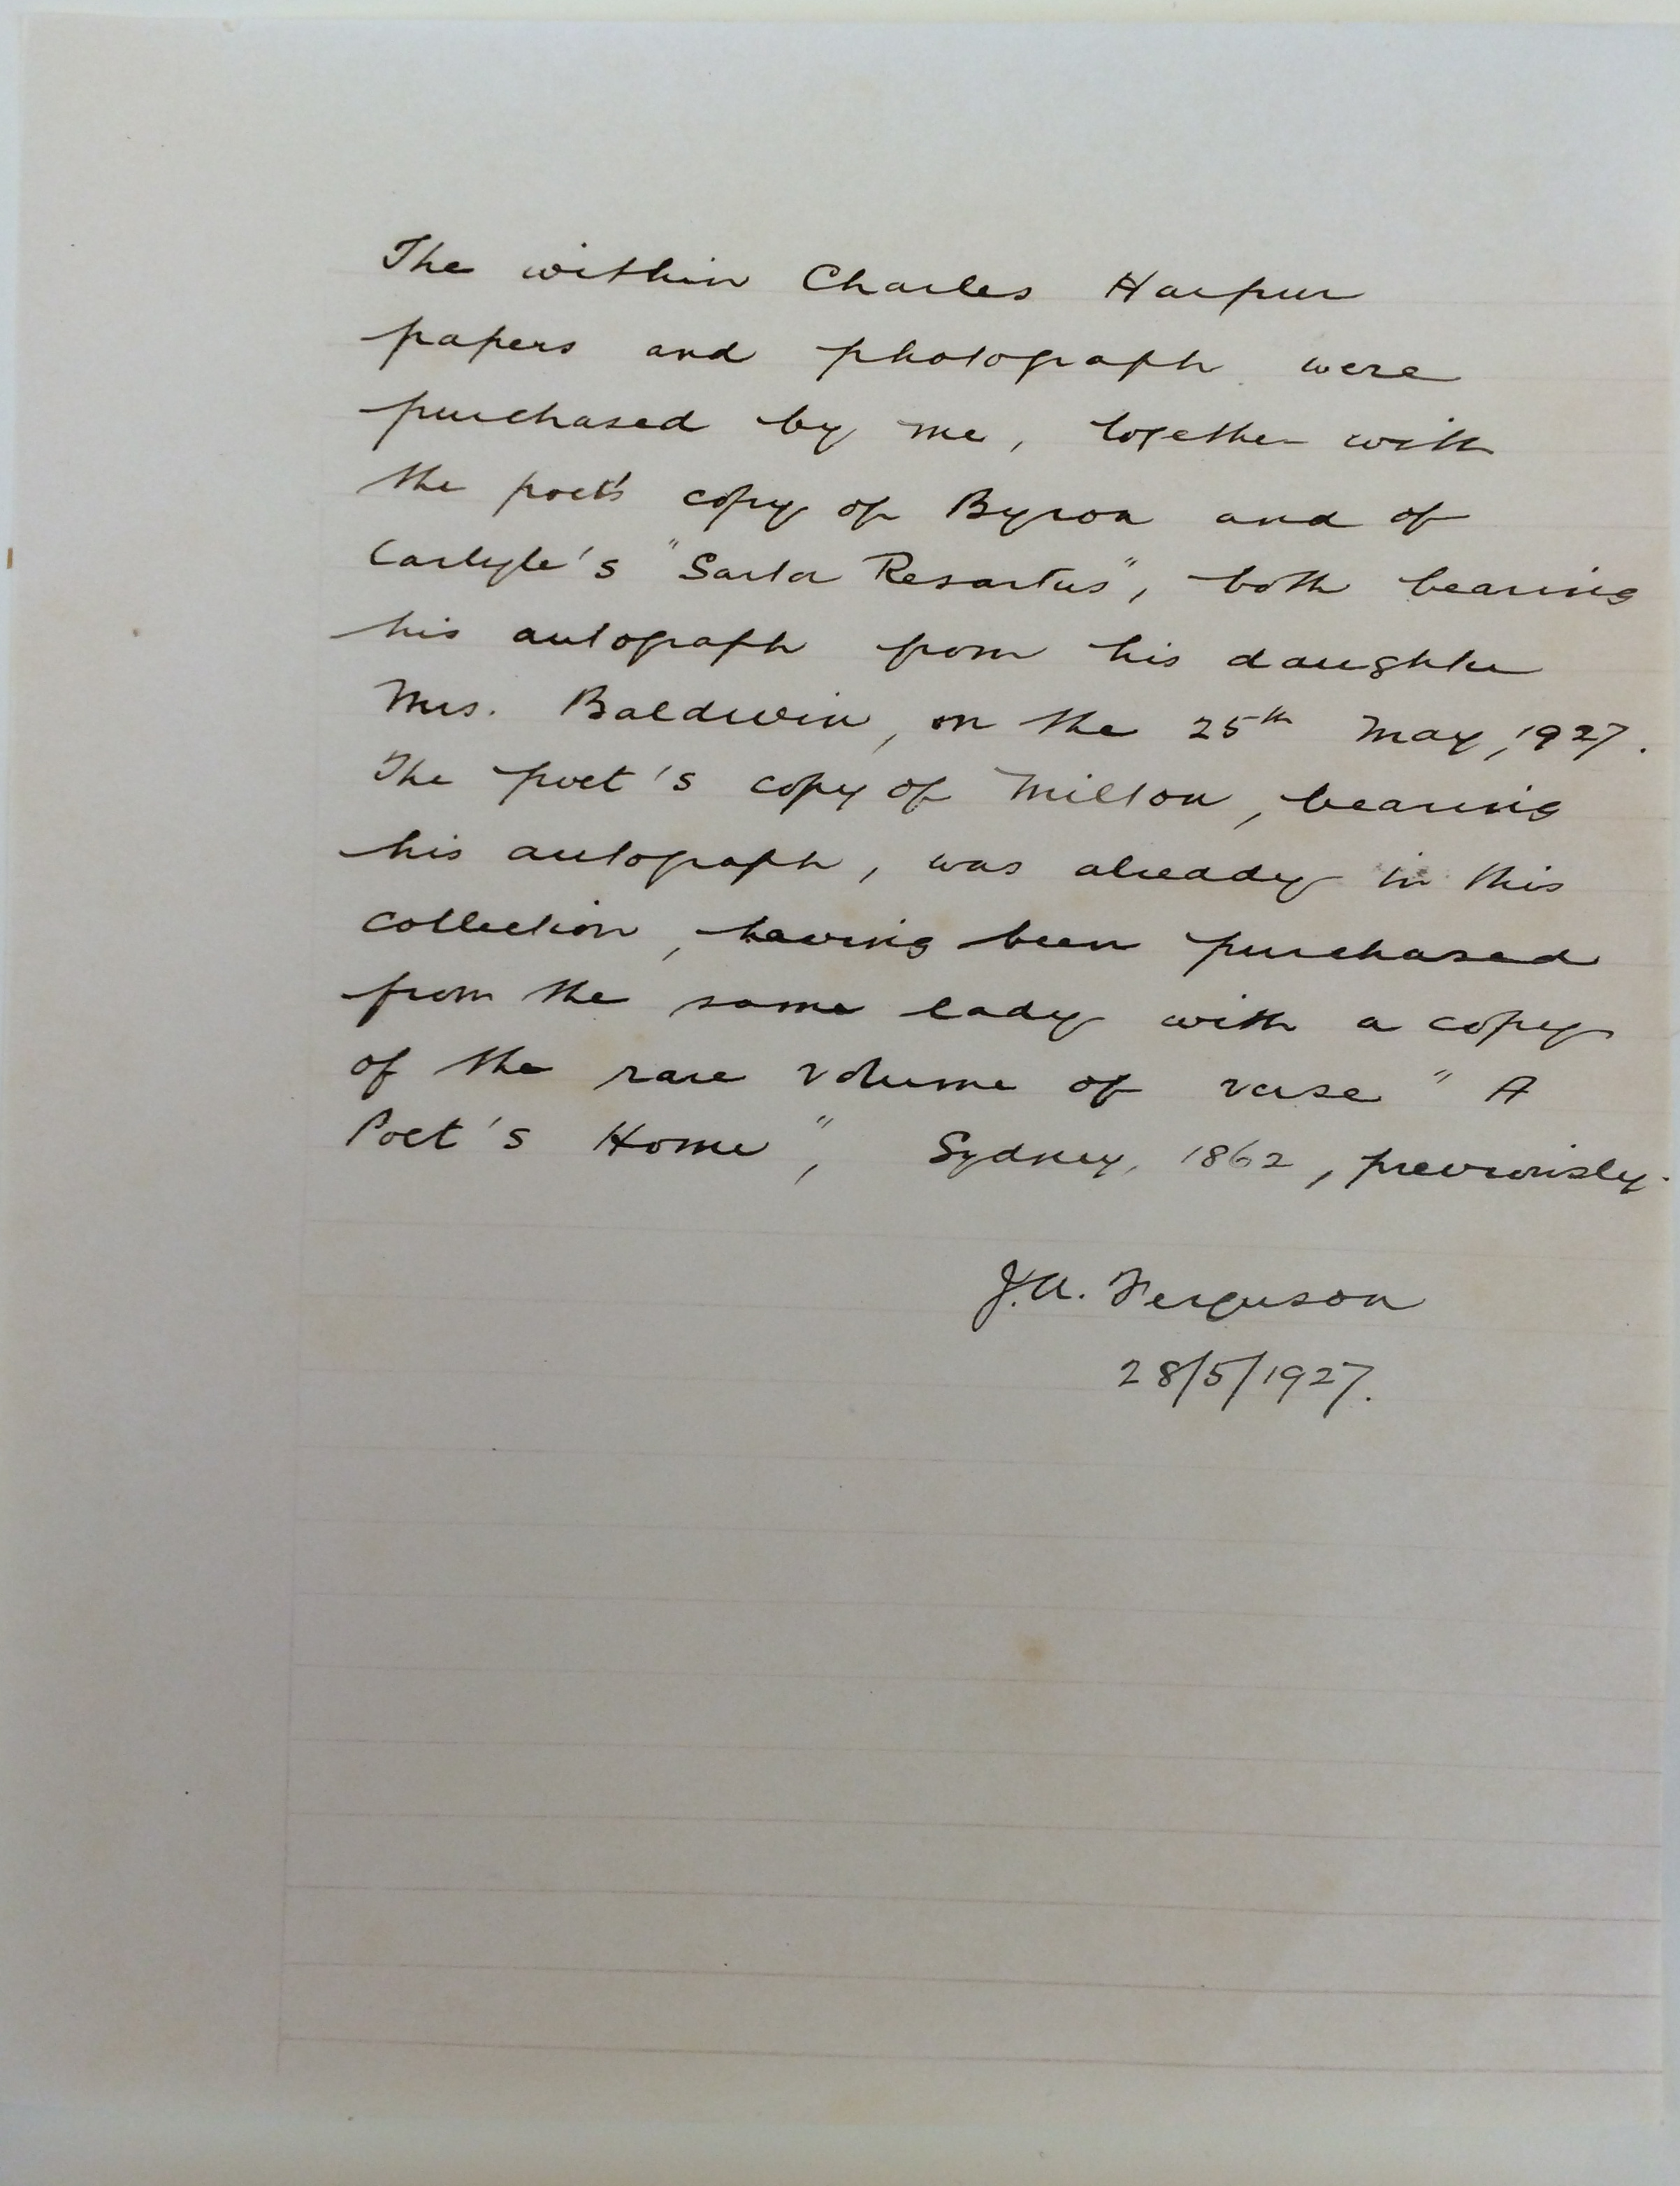 The within Charles Harpur
papers and photograph were
purchased by me, together with
the poet's copy of Byron and of
Carlyle's "Sartor Resartus", both bearing
his autograph from his daughter
Mrs. Baldwin, on the 25th May, 1927.
The poet's copy of Milton, bearing
his autograph, was already in this
collection, having been purchased
from the same lady with a copy
of the rare volume of verse "A
Poet's Home", Sydney, 1862, previously.
J.A. Ferguson
28/5/1927.